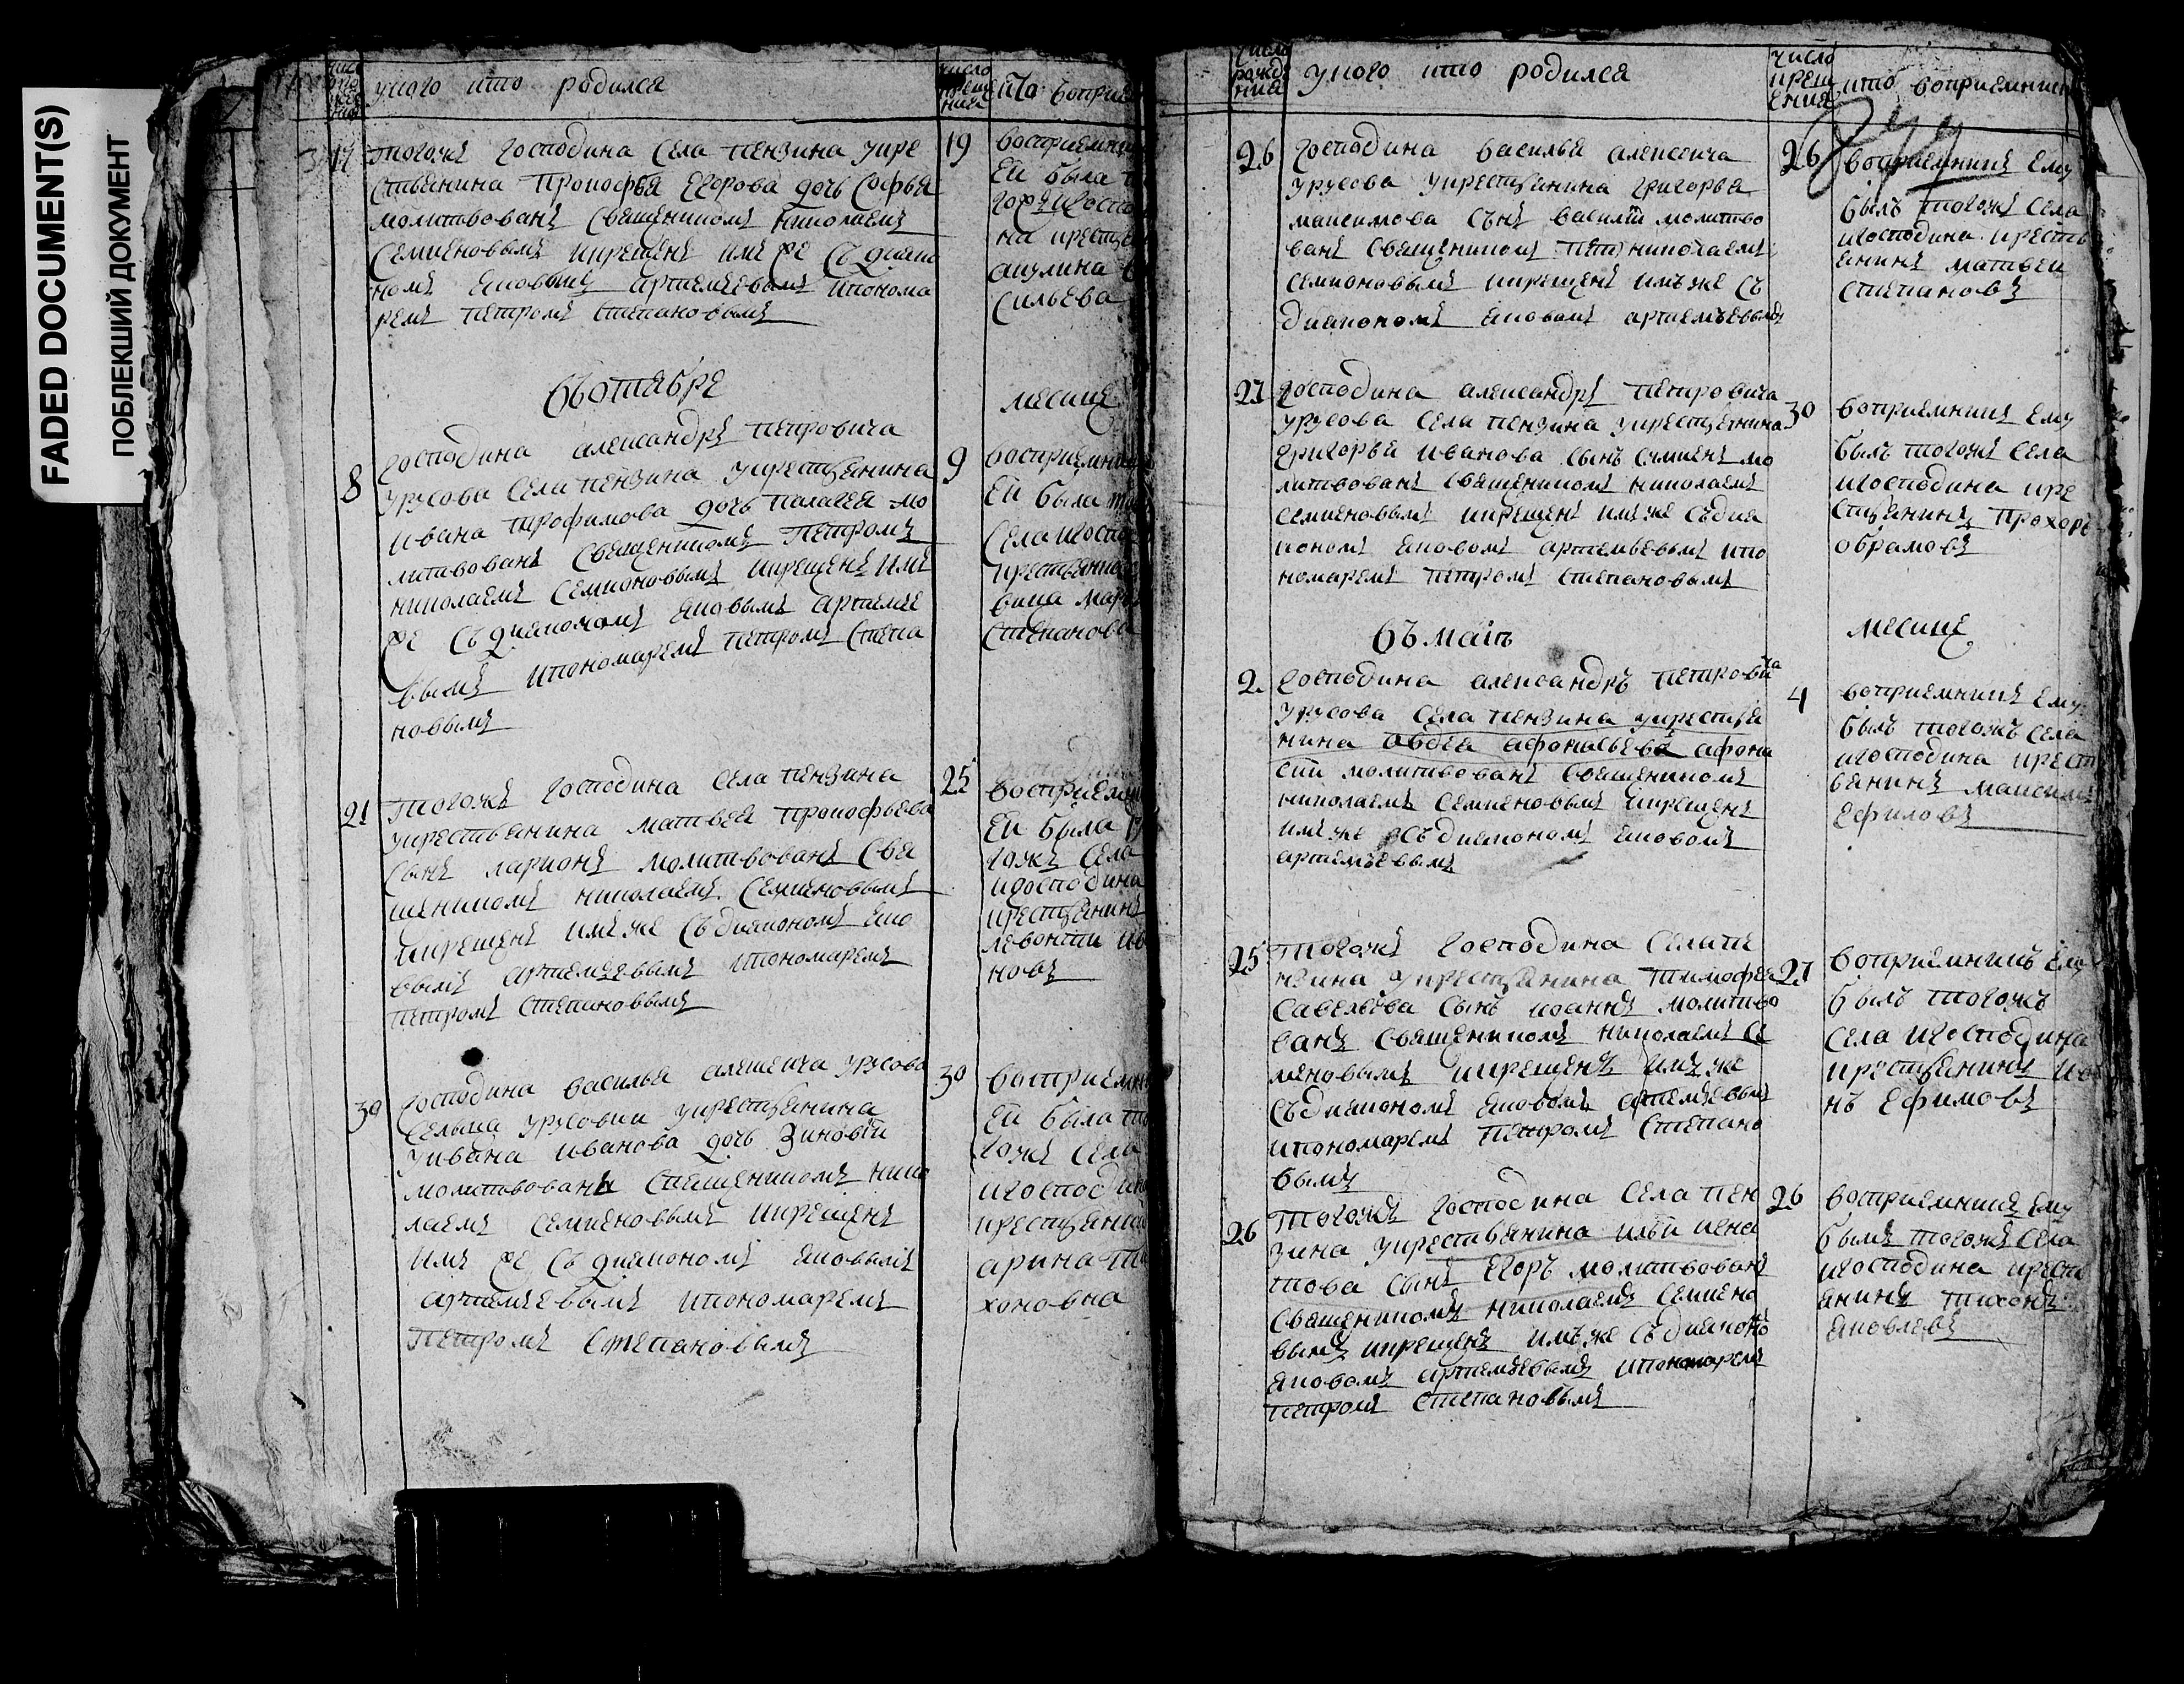 FADED DOCUMENT(S)
ПОБЛЕКШИЙ ДОКУМЕНТ
укого кто родился
17
тогожъ господина села пензина укре
стьянина Прокофья Егорова дочь Софья
молитвованъ священикомъ николаемъ
Семиеновымъ икрещенъ имъ же съ диако
номъ яковымъ артемьевымъ ипонома
ремъ петромъ степановымъ
19
восприемни
Ей была
на крестья
акулина
сильева
въ октябре
месице
8
господина александръ петровича
урусова села пензина укрестьянина
ивана трофимова дочь палагея мо
литвованъ священикомъ петромъ
николаемъ Семионовымъ икрещенъ имъ
же съ диекономъ яковымъ артемье
вымъ ипономаремъ петромъ степа
новымъ
9
восприемни
Ей была
села игоспо
крестьянко
вица мар
степанова
21
тогожъ господина села пензина
укрестьянина матвея прокофьева
сынъ ларионъ молитвованъ свя
щеникомъ николаемъ Семиеновымъ
икрещенъ имъ же съ диакономъ яко
вымъ артемьевымъ ипономаремъ
петромъ степановымъ
25
восприемн
Ей была
гожъ села
игосподина
крестьянинъ
левонтии ив
новъ
30
господина василья алексеича урусова
сельца урусовки укрестьянина
уивана иванова дочь Зиновіи
молитвованъ священикомъ нико
лаемъ семиеновымъ икрещенъ
имъ же съ диакономъ яковымъ
артемьевымъ ипономаремъ
петромъ степановымъ
30
восприемн
Ей была то
гожъ села
игосподин
крестьянин
арина ти
хоновна
число
рожд
ния
укого кто родился
число
крещ
ения
кто восприемник
26
господина василья алексеича
урусова укрестьянина григорья
максимова сынъ василіи молитво
ванъ священикомъ николаемъ
семионовымъ икрещенъ имъ же съ
диакономъ яковымъ артемьевымъ
26
воприемникъ ему
былъ тогожъ села
игосподина кресть
янинъ матвеи
степановъ
27
господина александръ петровича
урусова села пензина укрестьянина
григорья иванова сынъ симиенъ мо
литвованъ священикомъ николаемъ
семиеновымъ икрещенъ имъ же съ диа
кономъ яковомъ артемьевымъ ипо
номаремъ петромъ степановымъ
30
воприемникъ ему
былъ тогожъ села
игосподина кре
стьянинъ Прохоръ
обрамовъ
въ маіѣ
месице
2
господина александръ петровича
урусова села пензина укрестья
нина авдея афонасьева афона
сіи молитвованъ священикомъ
николаемъ Семиеновымъ икрещенъ
имъ же съ диакономъ яковомъ
артемьевымъ
4
воприемникъ ему
былъ тогожъ села
игосподина крест
ьянинъ максимъ
Ефиловъ
25
тогожъ господина села пе
нзина укрестьянина тимофея
савельева сынъ иоаннъ молитво
ванъ священикомъ николаемъ се
меновымъ икрещенъ имъ же
съ диакономъ яковомъ артемьевымъ
ипономаремъ петромъ степано
вымъ
27
воприемникъ ему
былъ тогожъ
села игосподина
крестьянинъ
нъ Ефимовъ
26
тогожъ господина села пен
зина укрестьянина ильи игна
това сынъ Егоръ молитвованъ
священикомъ николаемъ семиено
вымъ икрещенъ имъ же съ диаконо
яковомъ артемьевымъ ипономаремъ
петромъ степановымъ
26
восприемникъ ему
былъ тогожъ села
игосподина кресть
янинъ тихонъ
яковлевъ